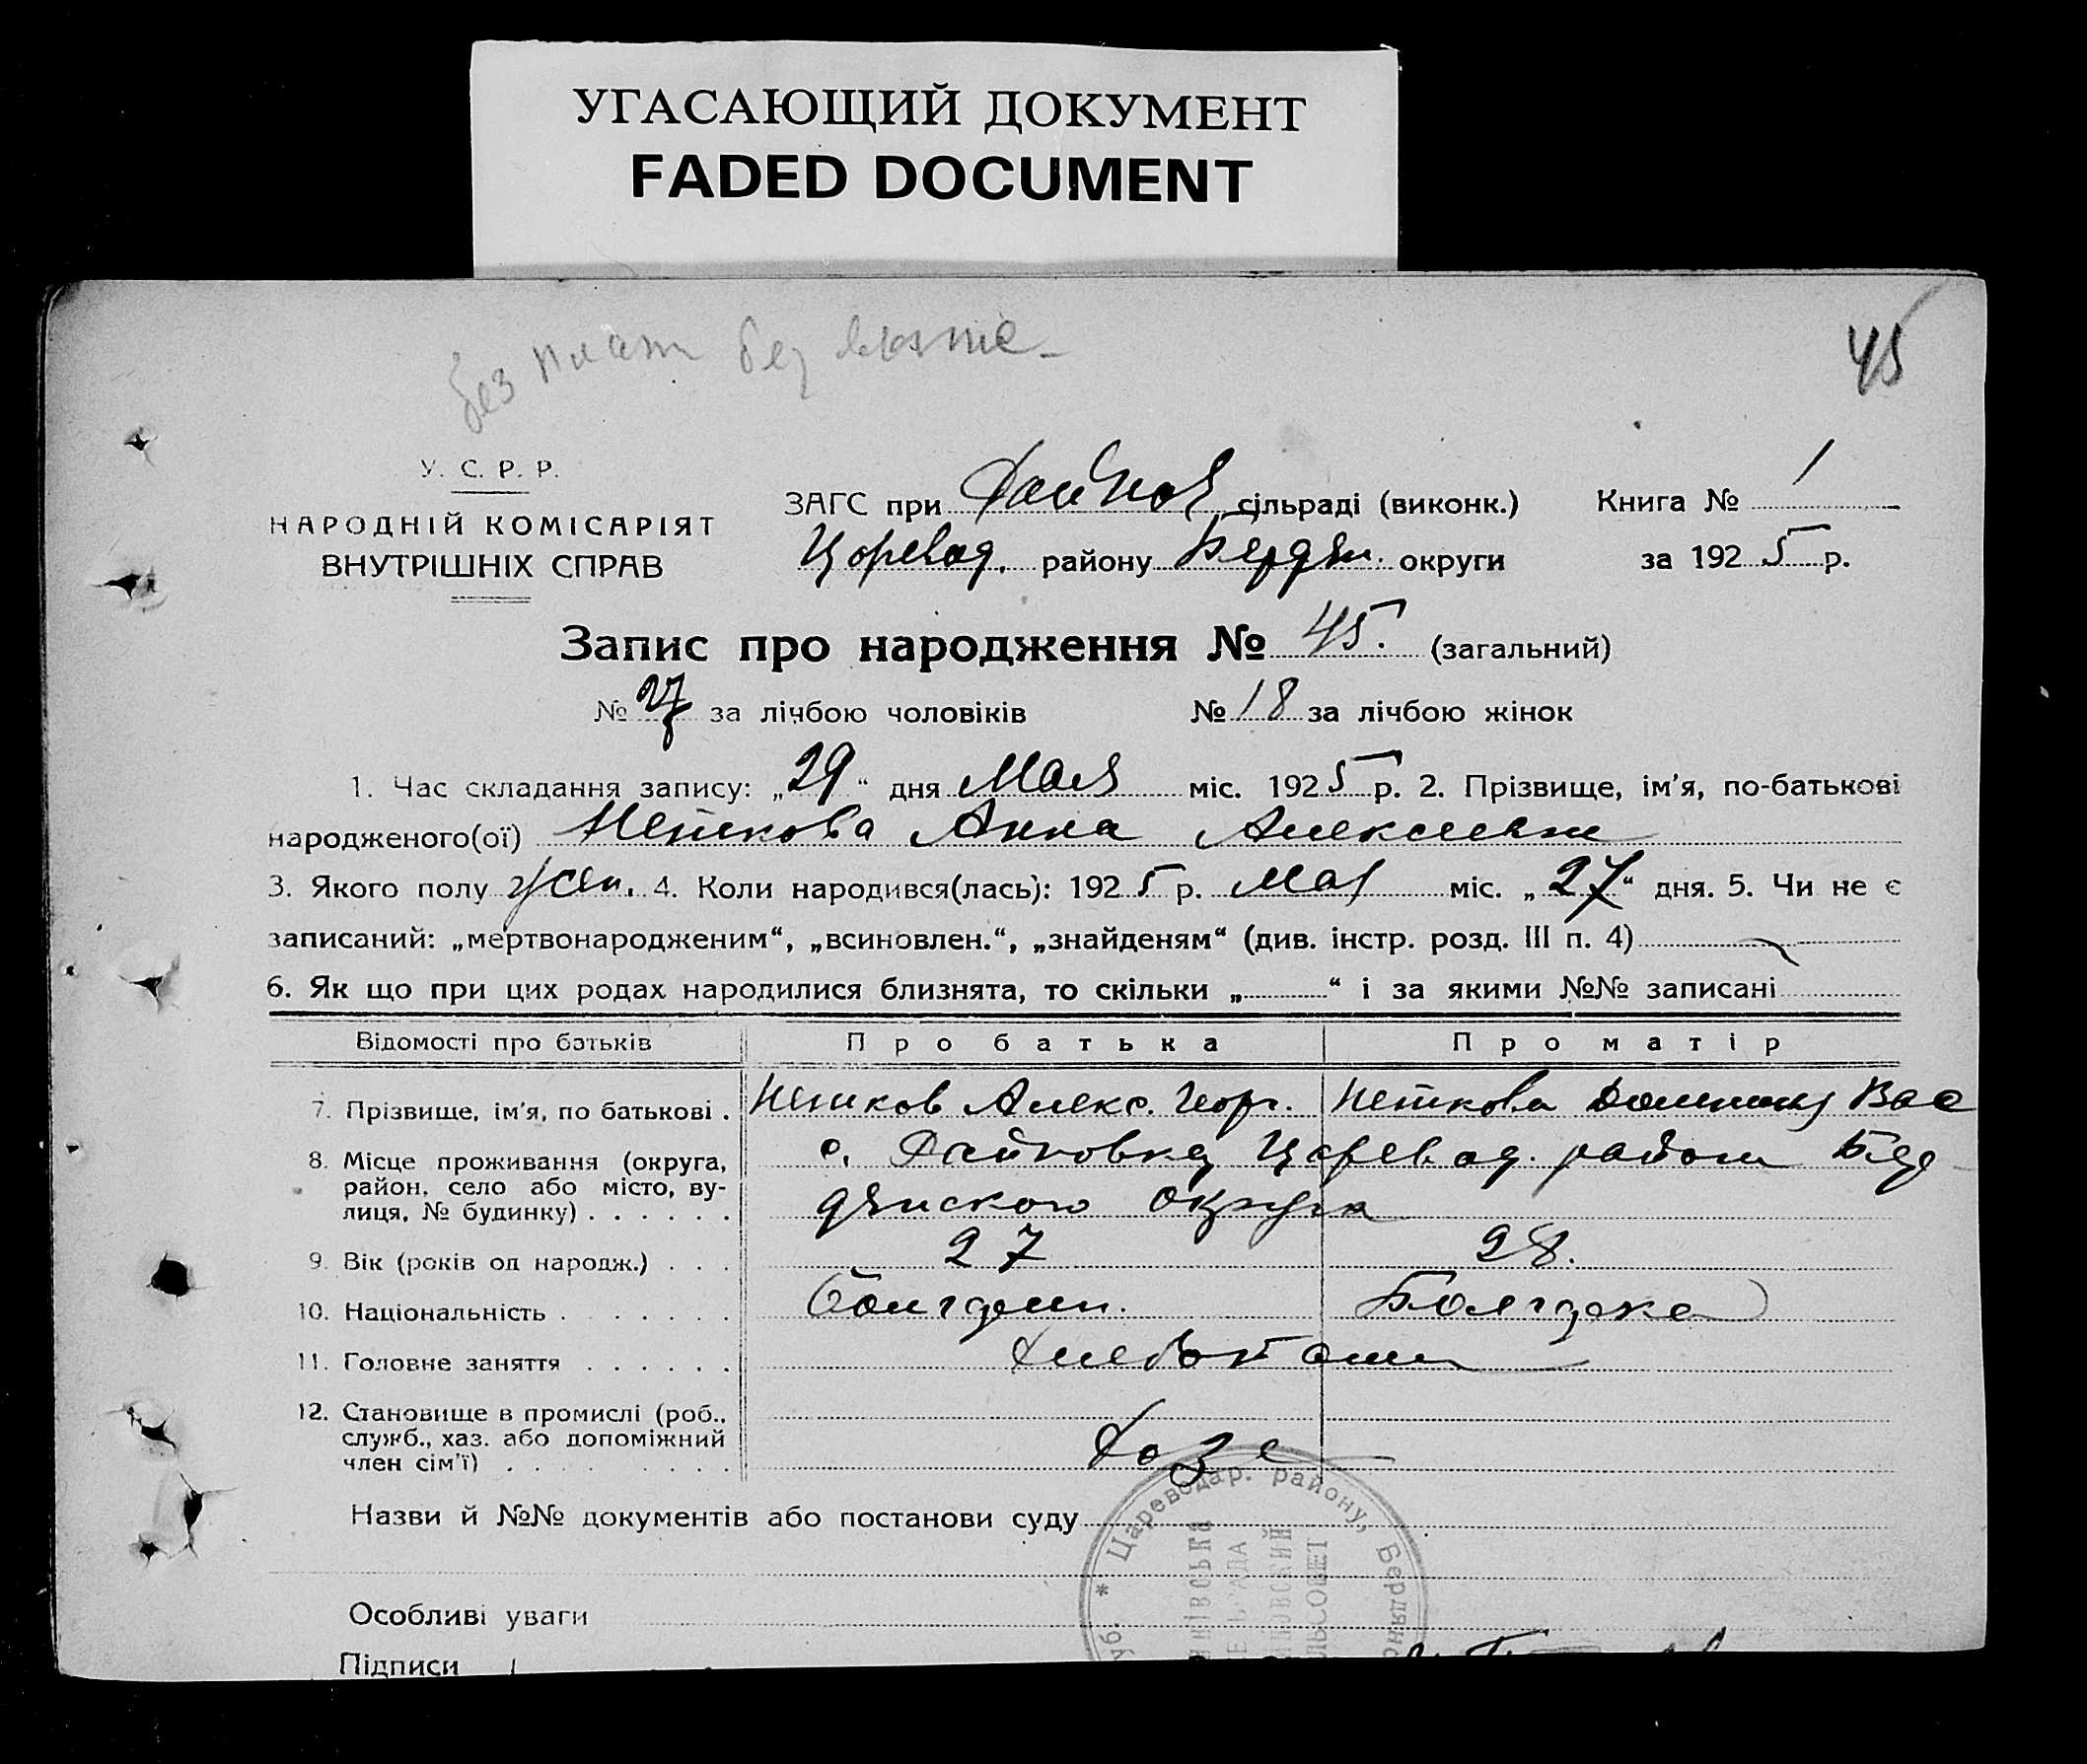 УГАСАЮЩИЙ ДОКУМЕНТ
FADED DOCUMENT
без без
45
У. С. Р. Р.
НАРОДНІЙ КОМІСАРІЯТ
ВНУТРІШНІХ СПРАВ
ЗАГС при сільраді (виконк.) Книга № 1
Царевод. району Бердян. округи за 1925 р.
Запис про народження № 45. (загальний)
№ 27 за лічбою чоловіків № 18 за лічбою жінок
1. Час складання запису: „29“ дня Мая міс. 1925 р. 2. Прізвище, ім'я, по-батькові
народженого(ої) Неткова Анна Алексеевна
3. Якого полу жен. 4. Коли народився(лась): 1925 р. Мая міс. „27“ дня. 5. Чи не є
записаний: „мертвонародженим“, „всиновлен.“, „знайденям“ (див. інстр. розд. III п. 4)
6. Як що при цих родах народилися близнята, то скільки „ “ і за якими №№ записані
Відомості про батьків Про батька Про матір
7. Прізвище, ім'я, по батькові . Нетков Алекс. Георг. Неткова Вас
8. Місце проживання (округа, с. Райновка Царевод. район Бер-
район, село або місто, ву-
лиця, № будинку) . . . . . . дянского округа
9. Вік (років од народж.) . . . 27 28.
10. Національність . . . . . . . Болгарин. Болгарка
11. Головне заняття . . . . . . Хлебопаш
12. Становище в промислі (роб.,
служб., хаз. або допоміжний
член сім'ї) . . . . . . . . Хозя
Назви й №№ документів або постанови суду
* Цареводар. району, Бердян
Особливі уваги
Підписи